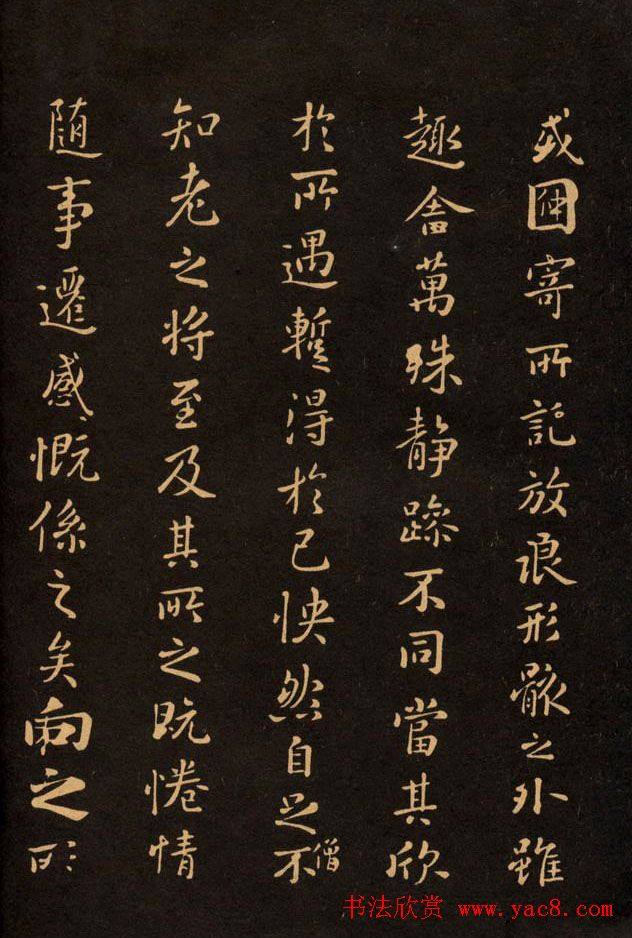 或因寄所託放浪形骸之外雖
趣舍萬殊静躁不同當其欣
於所遇蹔得於己怏然自足不
僧
知老之将至及其所之既惓情
随事遷感慨係之矣向之所
書法欣赏 www.yac8.com